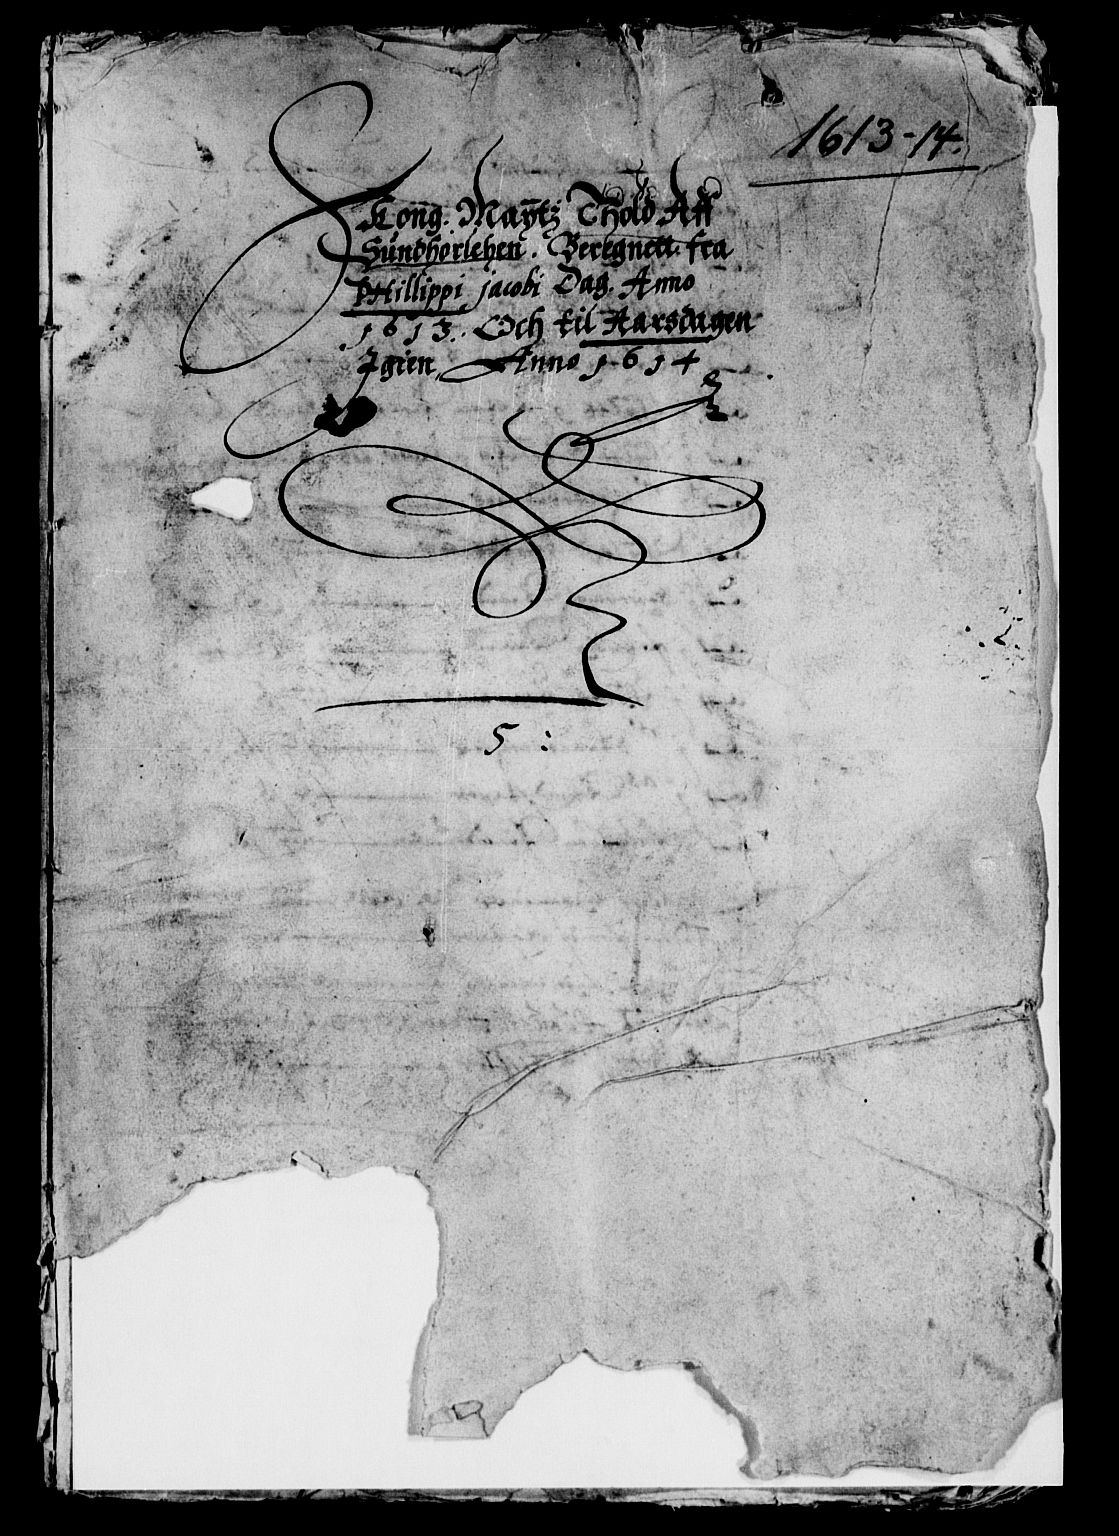 1613-14.
Kong. Maÿtz Thold Aff
Sundhorlehen. Beregnett. fra
PHillippi jacobi Dag. Anno
1613. Och til Aarsdagen
Igien, Anno 1614
5: